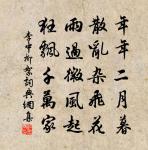 年年二月暮
散亂杂飛花
雨過微風起
狂飄千萬家
李中柳絮詞典網集